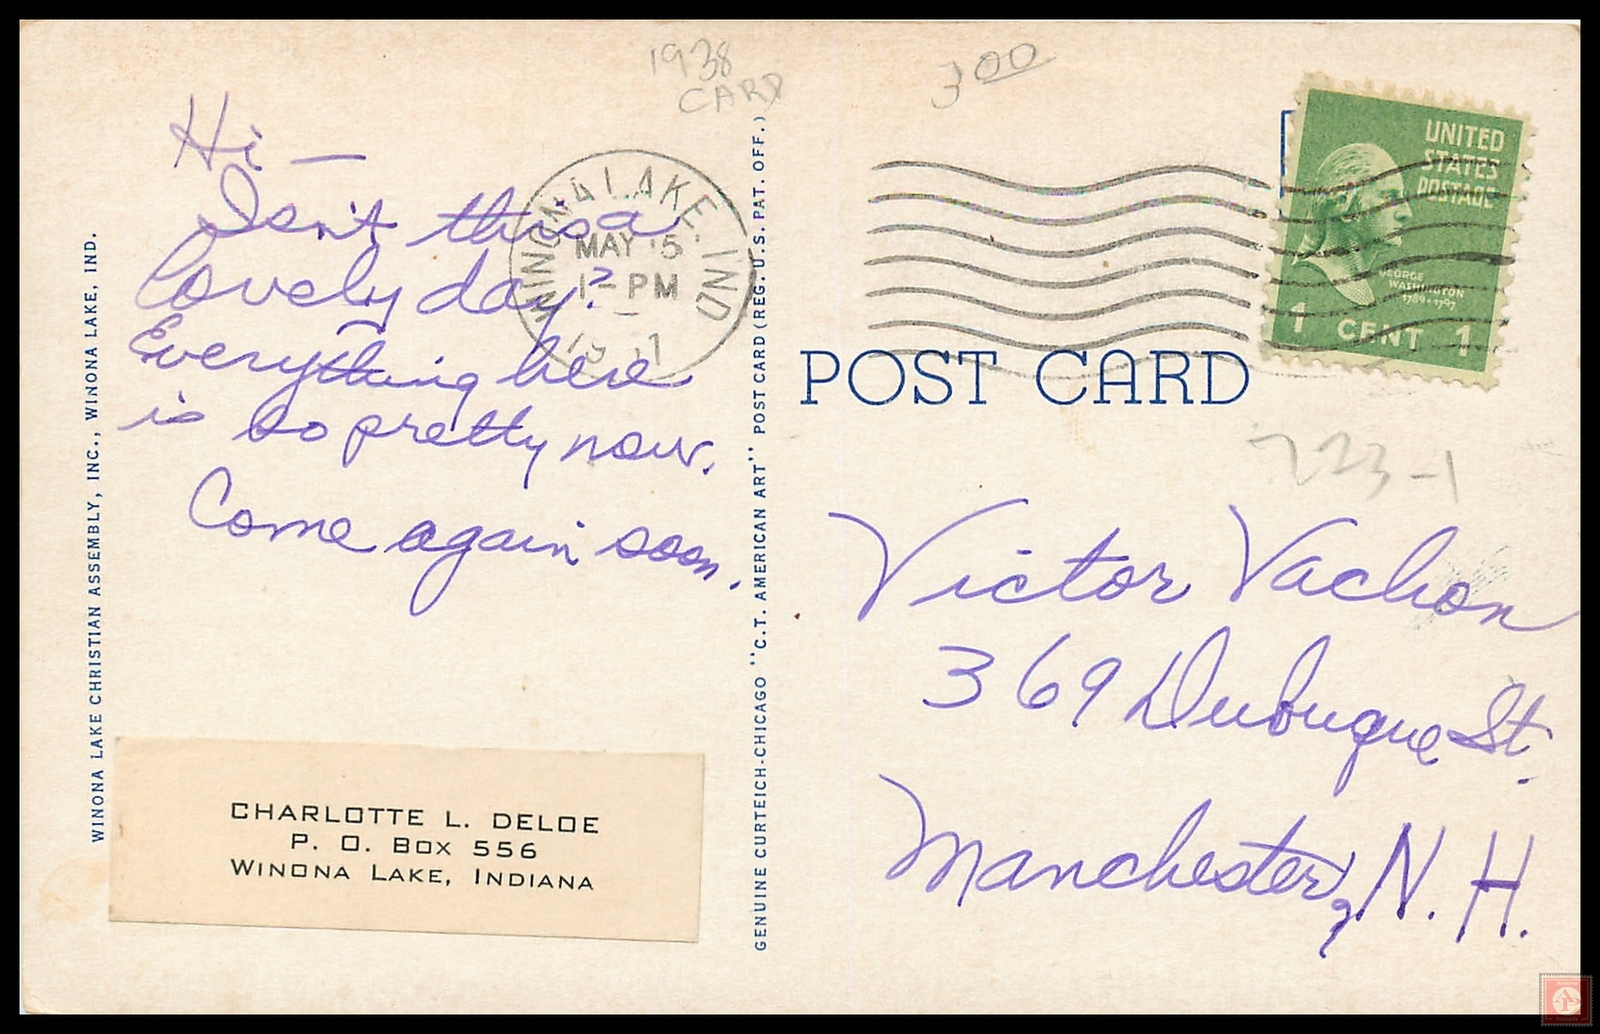 1938
CARD
3 00
Hi —
Isn't this a
lovely day?
Everything here
is so pretty now.
Come again soon.
WINONA LAKE, IND.
MAY 5
PM
WINONA LAKE CHRISTIAN ASSEMBLY, INC., WINONA LAKE, IND.
CHARLOTTE L. DELOE
P. O. BOX 556
WINONA LAKE, INDIANA
GENUINE CURTEICH-CHICAGO "C.T. AMERICAN ART" POST CARD (REG. U.S. PAT. OFF.)
UNITED
STATES
POSTAGE
GEORGE
WASHINGTON
1789-1797
1 CENT 1
POST CARD
723-1
Victor Vachon
369 Dubuque St.
Manchester, N. H.